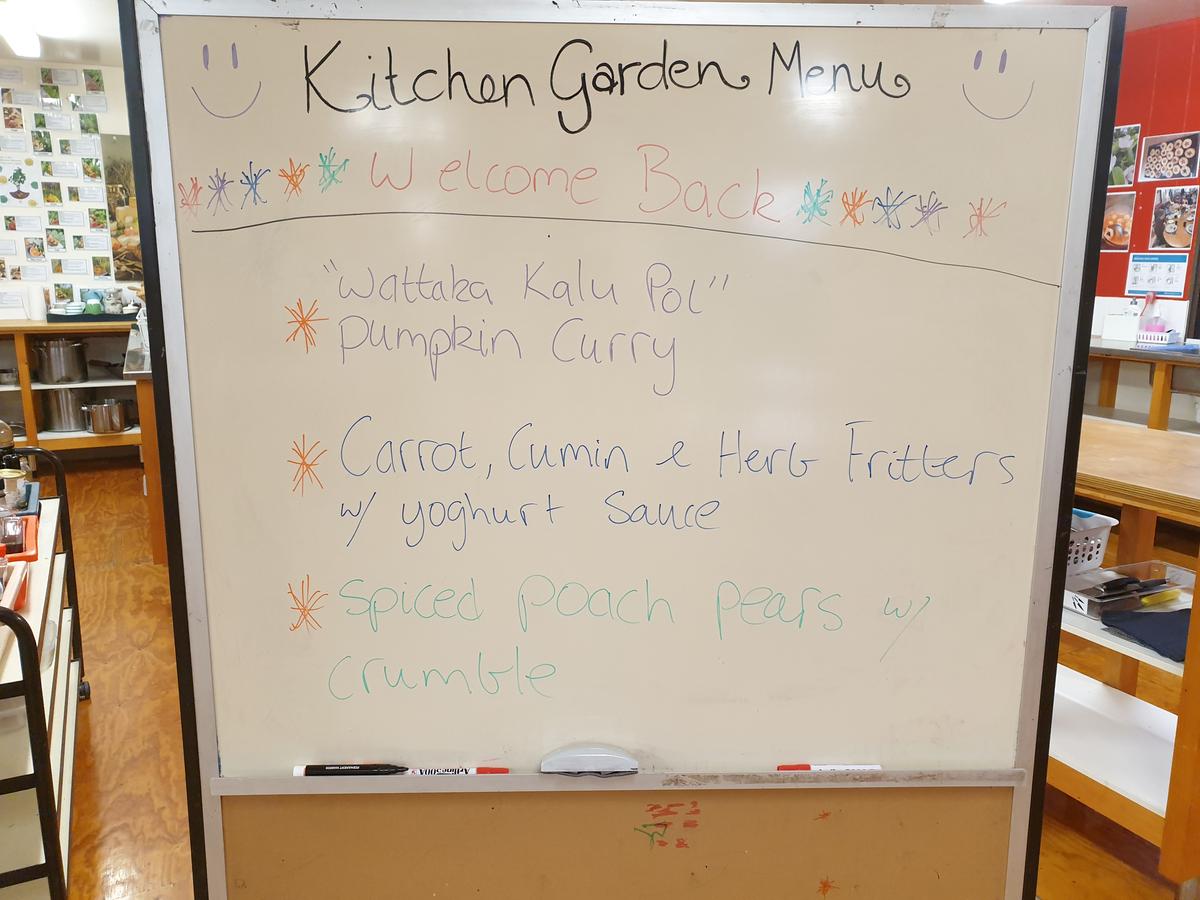 Kitchen Garden Menu
Welcome Back
"Wattaka Kalu Pol"
Pumpkin Curry
Carrot, Cumin & Herb Fritters
w/ yoghurt Sauce
Spiced poach pears w/
crumble
PERMANENT MARKER Artline 500A